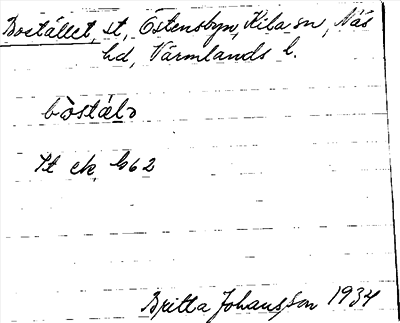 Bostället, st, Östensbyn, Kila sn, Näs
hd, Värmlands l.
bòstälə
St ek. b62
Britta Johansson 1934